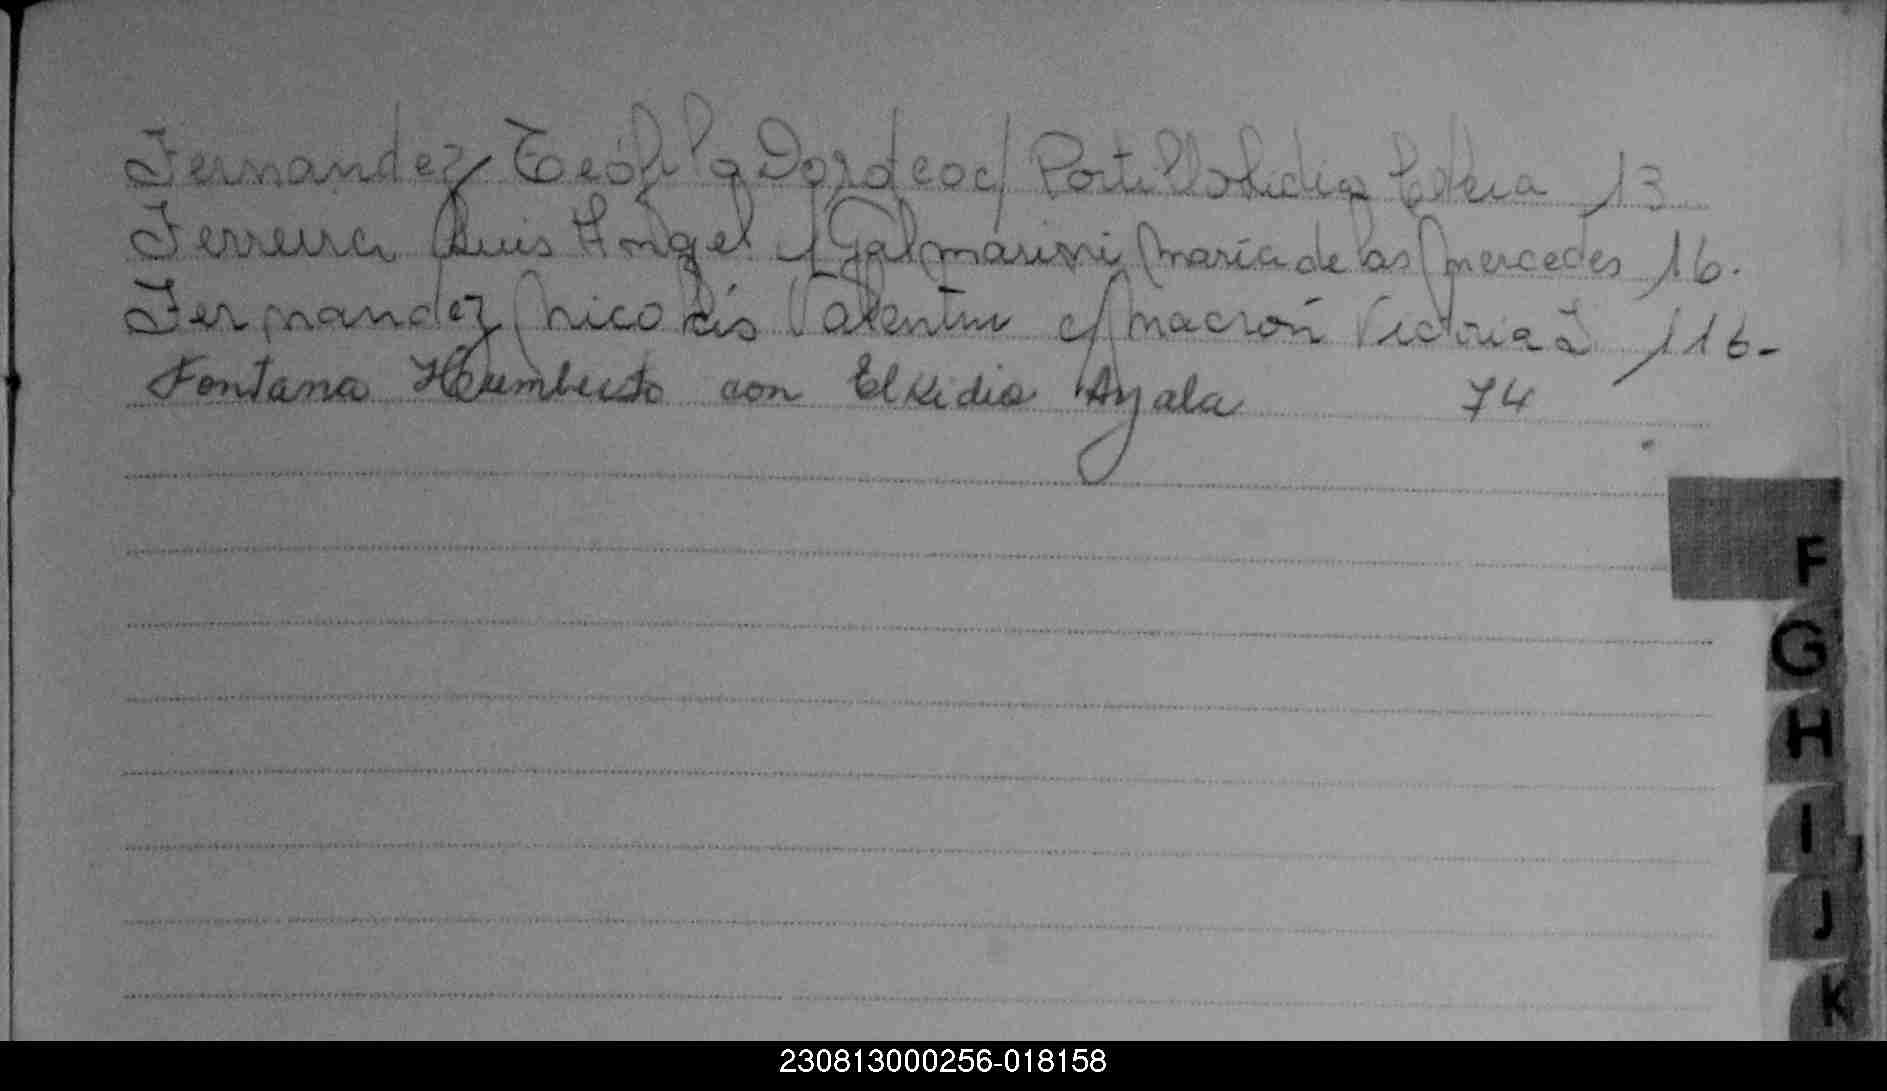 Fernandez Teófilo Dordeo c/ Portillo Lidia Estera 13
Ferreira Luis Angel c/ Galmarini María de las Mercedes 16.
Fernandez Nicolás Valentin c/ Macrón Victoria I 116-
Fontana Humberto con Elkidia Ayala 74
F
G
H
I
J
K
230813000256-018158